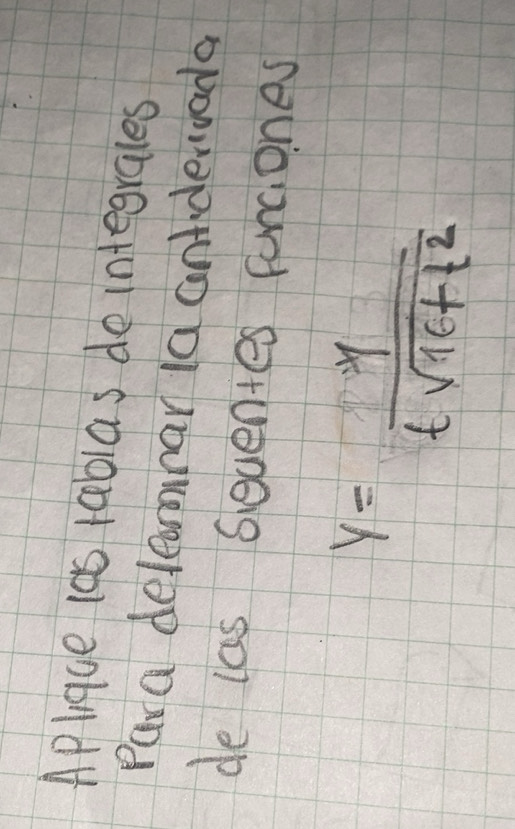 Aplique las tablas de integrales
Para determinar la antiderivada
de las siguientes funciones
y =
t √16+t²